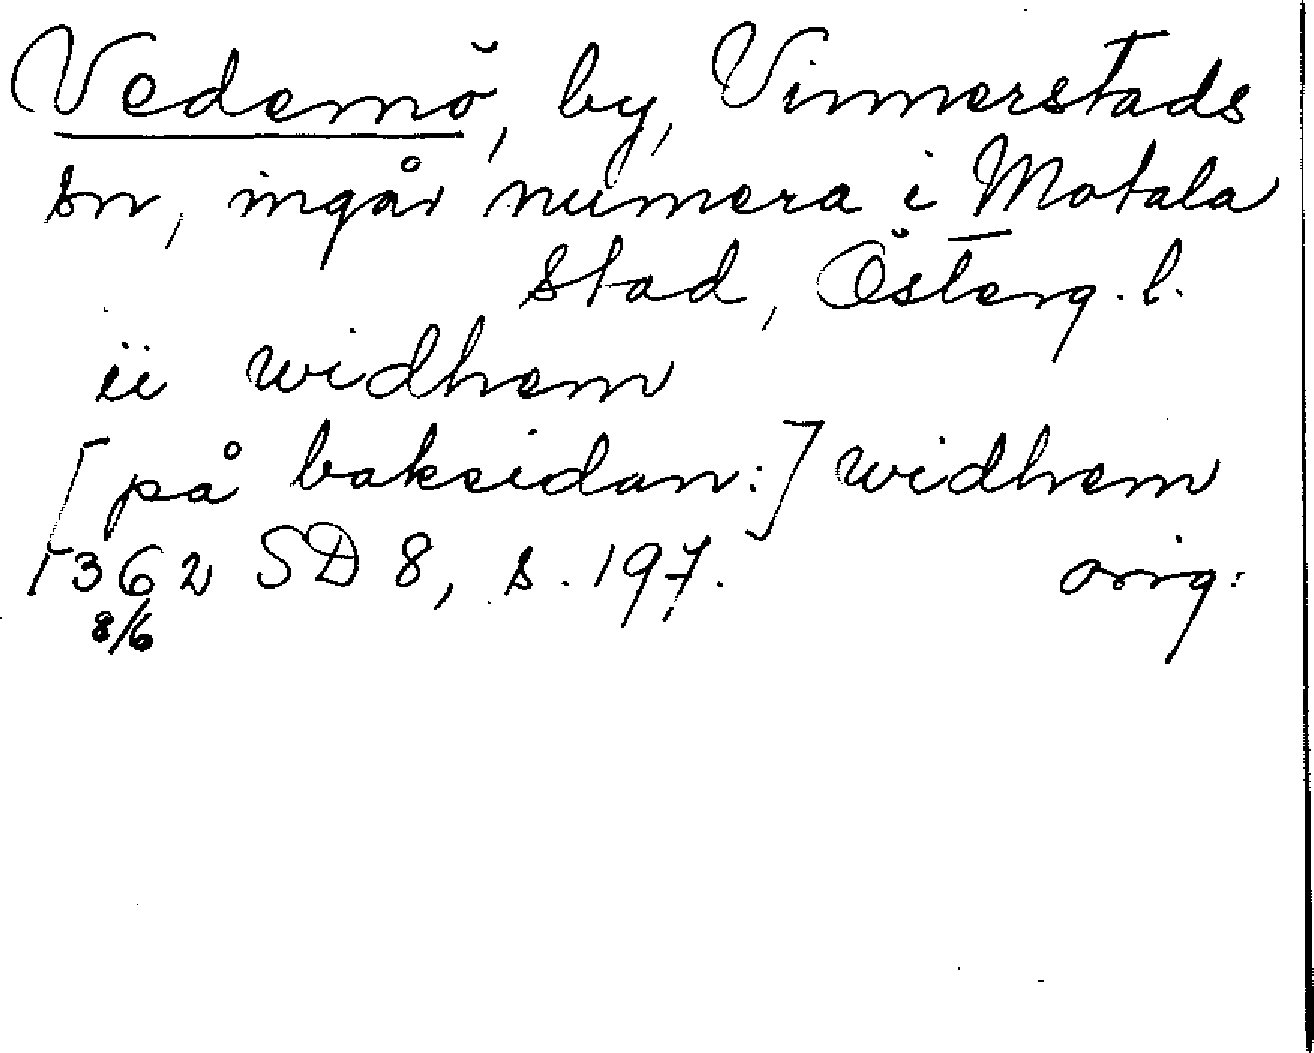 Vedemö, by, Vinnerstads
sn, ingår numera i Motala
stad, Österg. l.
ii widhem
[på baksidan:] widhem
1362 SD 8, s. 197. orig.
8/6